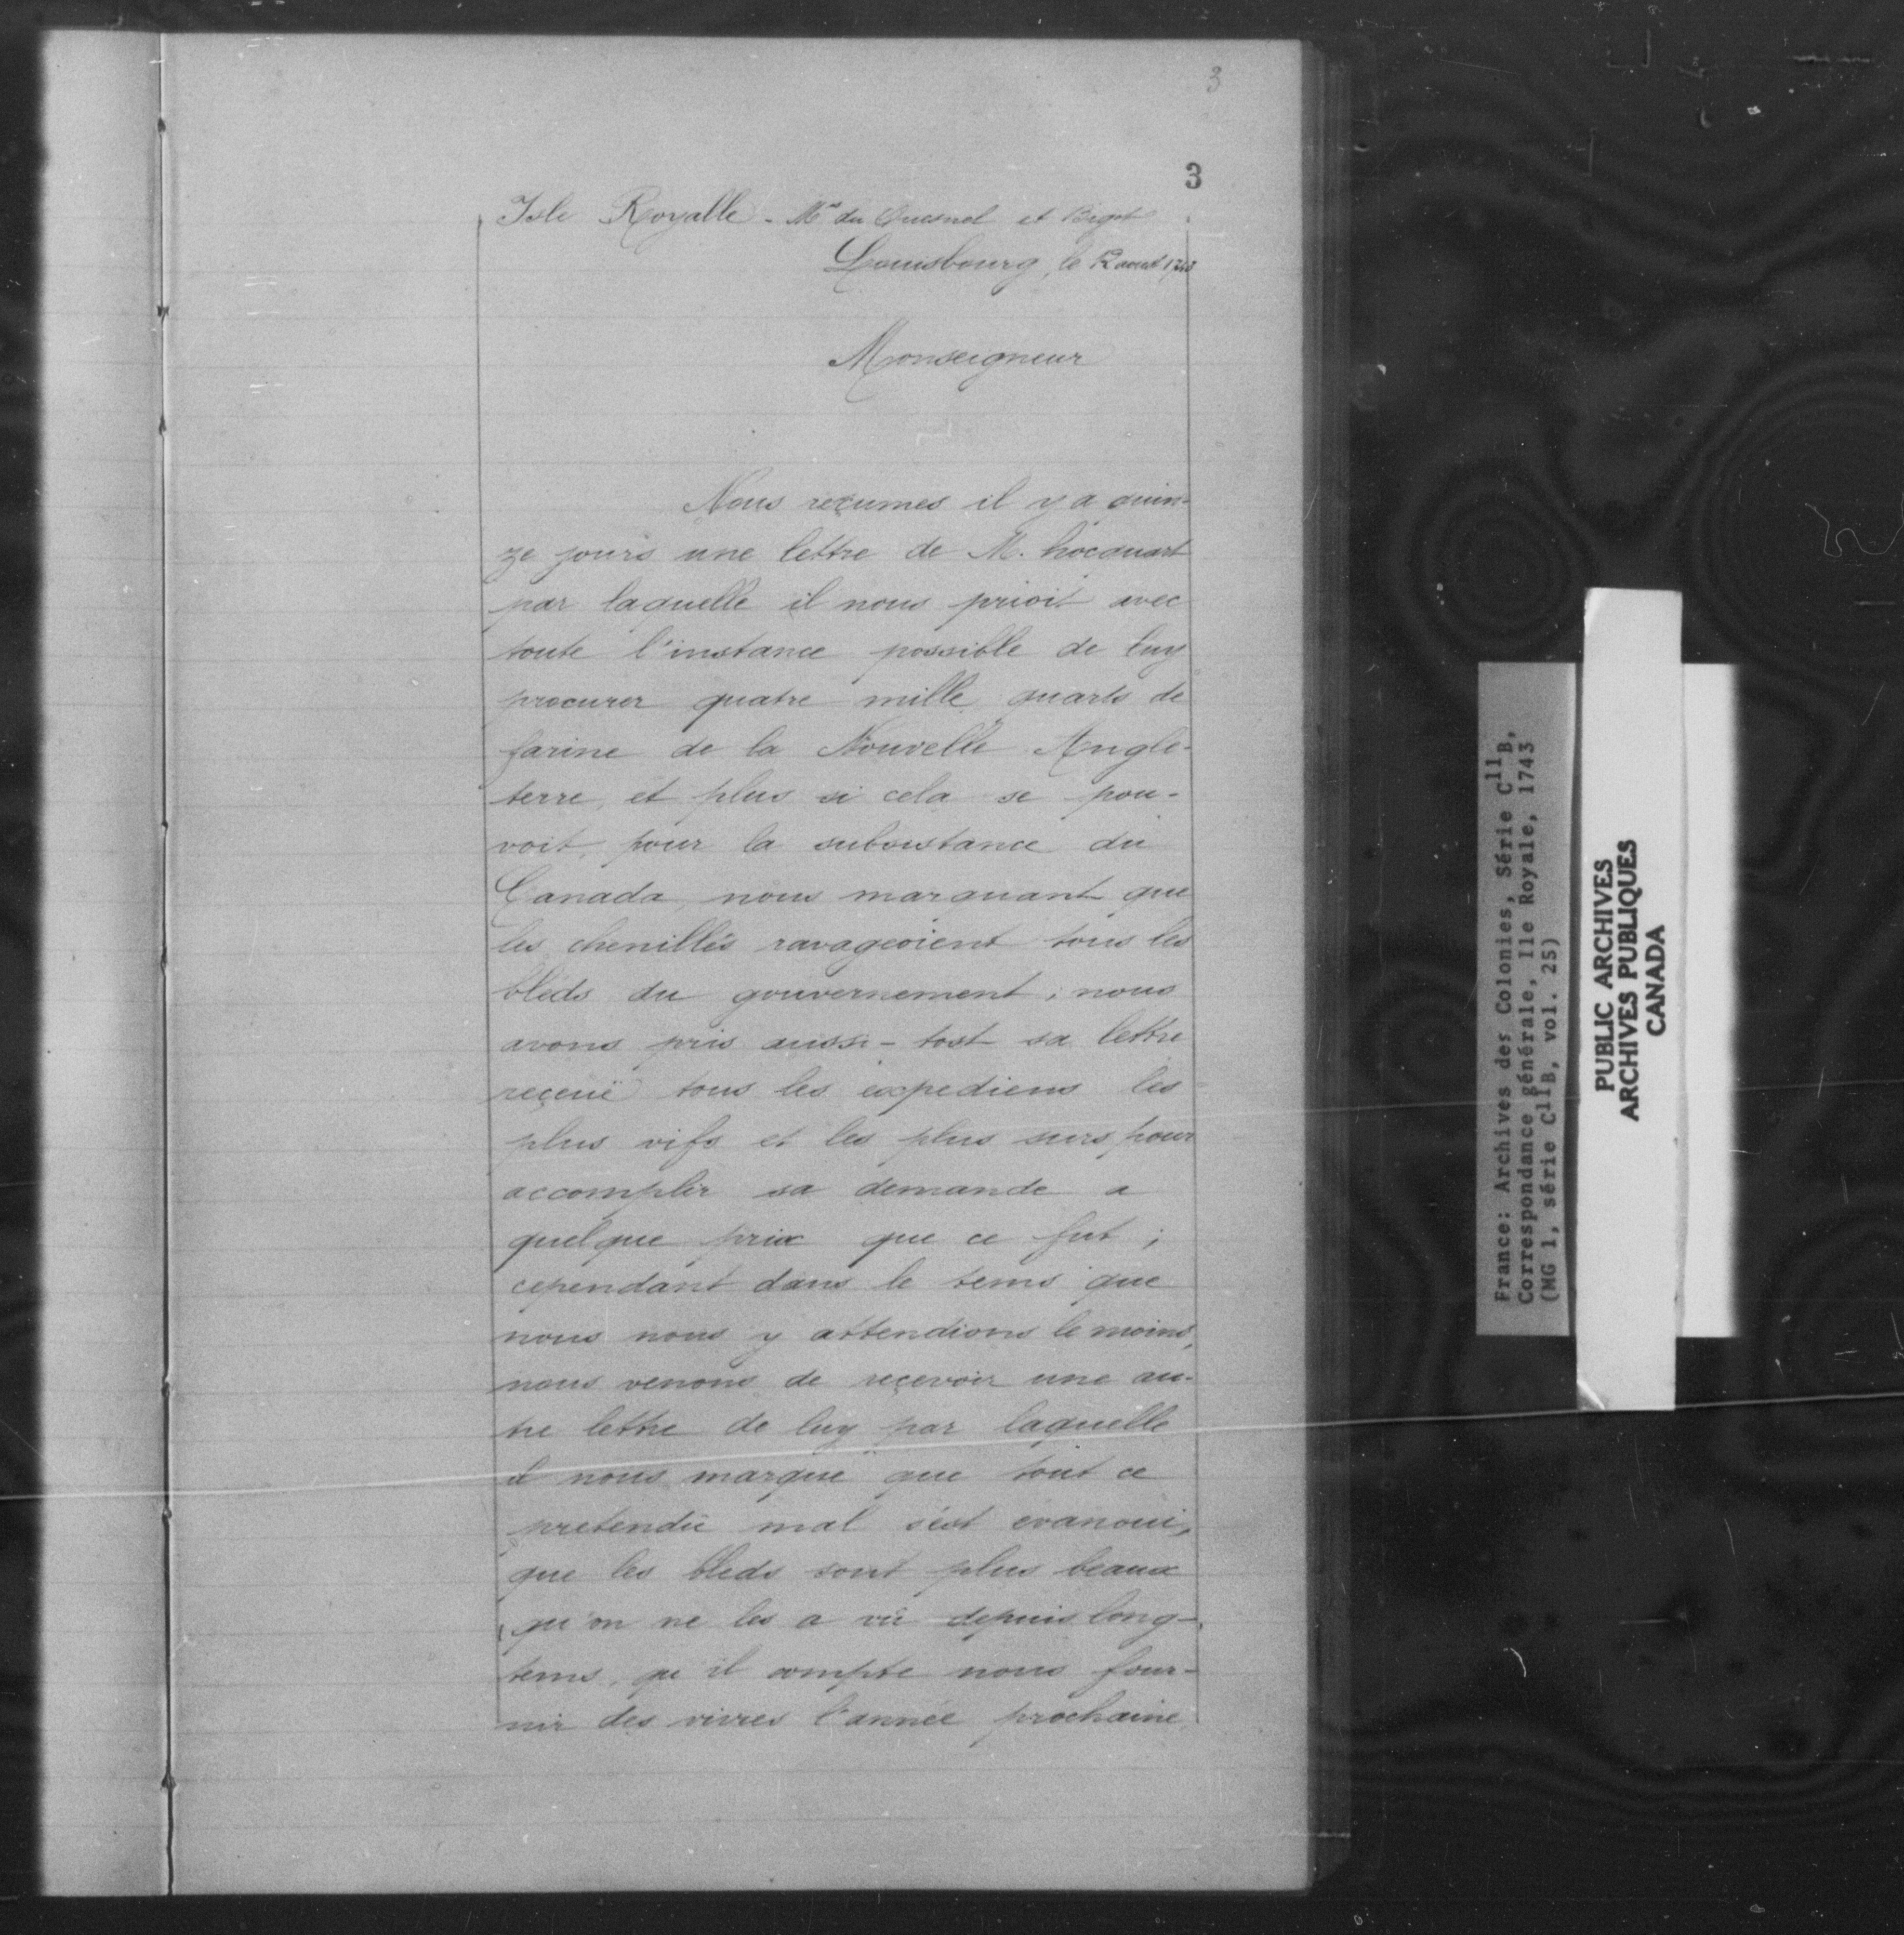 3
3
Isle Royalle - Mrs du Quesnel et Bigot
Louisbourg, le 12 aoust 1743
Monseigneur
Nous reçumes il y a quin-
ze jours une lettre de M. hocquart
par laquelle il nous prioit avec
toute l'instance possible de luy
procurer quatre mille quarts de
farine de la Nouvelle Angle-
terre, et plus si cela se pou-
voit, pour la subsistance du
Canada, nous marquant que
les chenilles ravageoient tous les
bleds du gouvernement; nous
avons pris aussi-tost sa lettre
reçeuë tous les expediens les
plus vifs et les plus surs pour
accomplir sa demande a
quelque prix que ce fut;
cependant dans le tems que
nous nous y attendions le moins,
nous venons de reçevoir une au-
tre lettre de luy par laquelle
il nous marque que tout ce
pretendu mal s'est evanoui,
que les bleds sont plus beaux
qu'on ne les a vû depuis long-
tems, qu'il compte nous four-
nir des vivres l'année prochaine
France: Archives des Colonies, Série C11B,
Correspondance générale, Ile Royale, 1743
(MG 1, série C11B, vol. 25)
PUBLIC ARCHIVES
ARCHIVES PUBLIQUES
CANADA